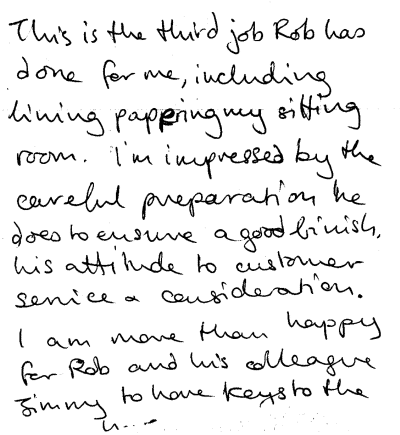 This is the third job Rob has
done for me, including
lining pappering my sitting
room. I'm impressed by the
careful preparation he
does to ensure a good finish,
his attitude to customer
service & consideration.
I am more than happy
for Rob and his colleague
Jimmy to have keys to the